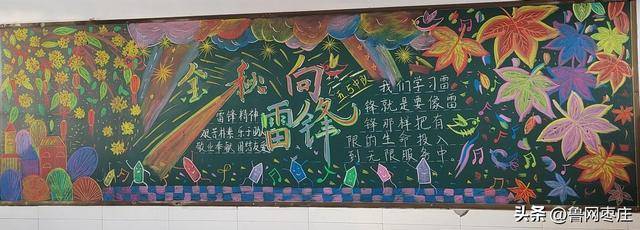 金秋向
雷锋
五·5中队
雷锋精神
艰苦朴素 乐于助人
敬业奉献 团结友爱
我们学习雷
锋就是要像雷
锋那样把有
限的生命投入
到无限服务中。
头条 @鲁网枣庄